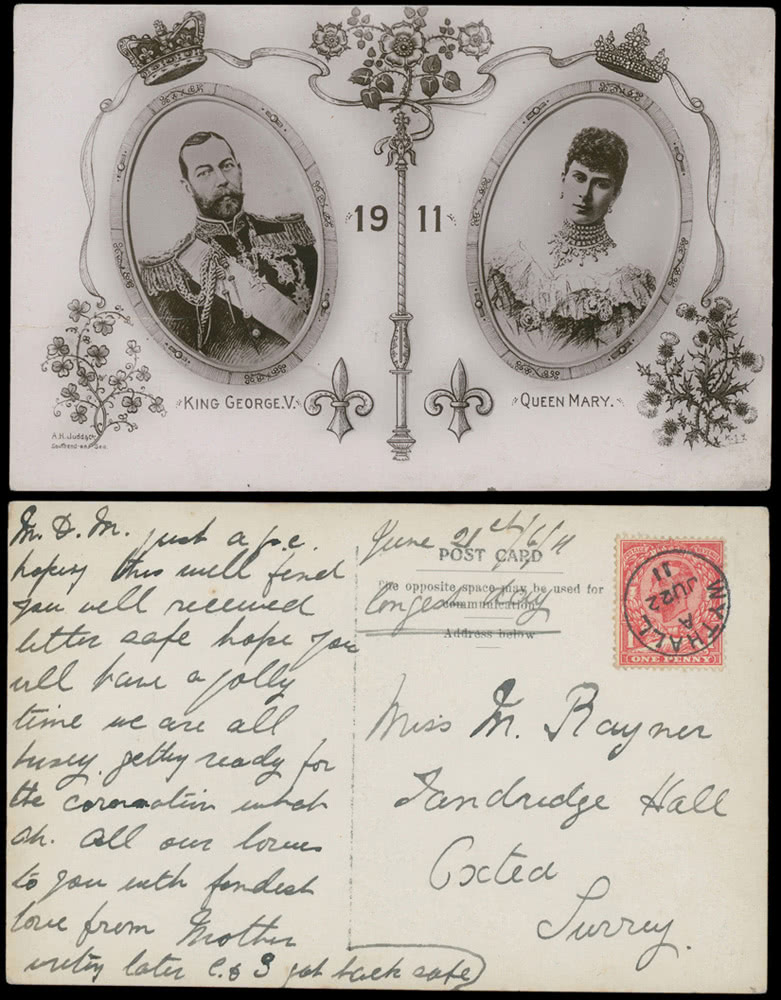 1911
KING GEORGE.V.
QUEEN MARY.
A.H. Judd & Co.
M. D. M. just a p.c.
hoping this will find
you well received
letter safe hope you
will have a jolly
time we are all
busy getting ready for
the coronation
oh. All our
to you with fondest
love from Mother
writing later C. & S got back safe
June 21st/6/11
POST CARD
The opposite space may be used for
communication
longest day
Address below
ONE PENNY
WYTHALL
A
JU 22
11
Miss M. Rayner
Tandridge Hall
Oxted
Surrey.